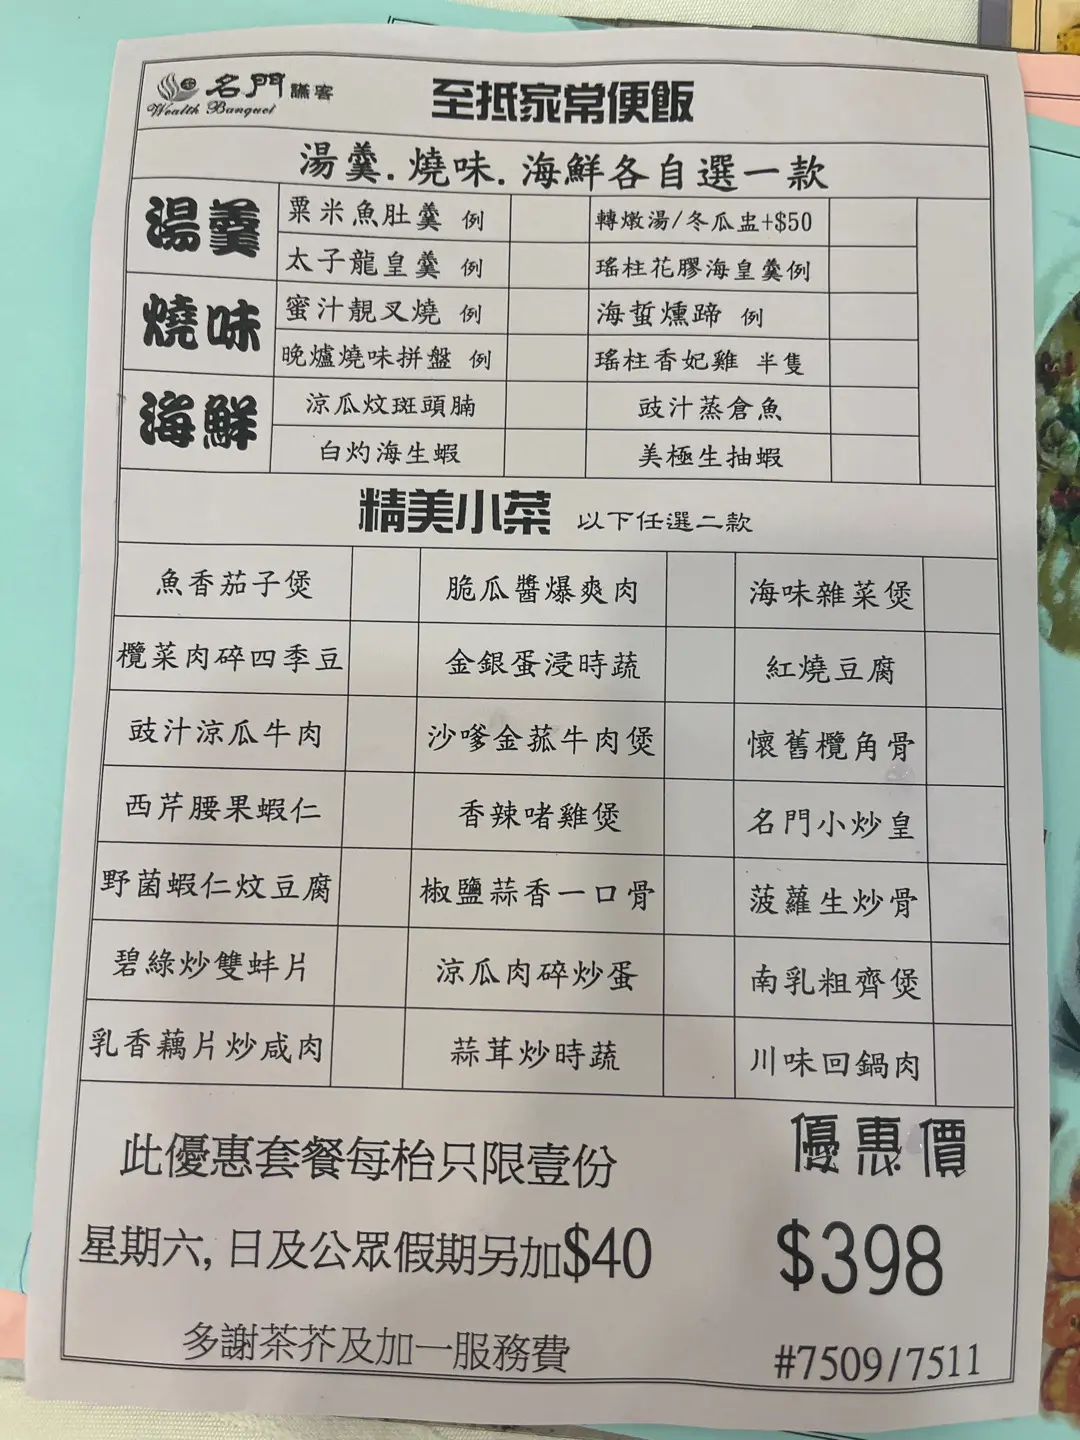 名門讌客
Wealth Banquet
至抵家常便飯
湯羹.燒味.海鮮各自選一款
湯羹
粟米魚肚羹 例
轉燉湯/冬瓜盅+$50
太子龍皇羹 例
瑤柱花膠海皇羹例
燒味
蜜汁靚叉燒 例
海蜇燻蹄 例
晚爐燒味拼盤 例
瑤柱香妃雞 半隻
海鮮
涼瓜炆斑頭腩
豉汁蒸倉魚
白灼海生蝦
美極生抽蝦
精美小菜 以下任選二款
魚香茄子煲
脆瓜醬爆爽肉
海味雜菜煲
欖菜肉碎四季豆
金銀蛋浸時蔬
紅燒豆腐
豉汁涼瓜牛肉
沙嗲金菰牛肉煲
懷舊欖角骨
西芹腰果蝦仁
香辣啫雞煲
名門小炒皇
野菌蝦仁炆豆腐
椒鹽蒜香一口骨
菠蘿生炒骨
碧綠炒雙蚌片
涼瓜肉碎炒蛋
南乳粗齊煲
乳香藕片炒咸肉
蒜茸炒時蔬
川味回鍋肉
此優惠套餐每枱只限壹份
優惠價
星期六, 日及公眾假期另加$40
$398
多謝茶芥及加一服務費
#7509/7511